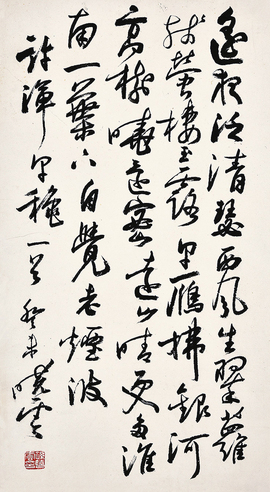 遙夜泛清瑟西風生翠蘿
殘螢棲玉露早雁拂銀河
高樹曉還密遠山晴更多淮
南一葉下自覺老煙波
許渾早穐一首 癸未 曉雲